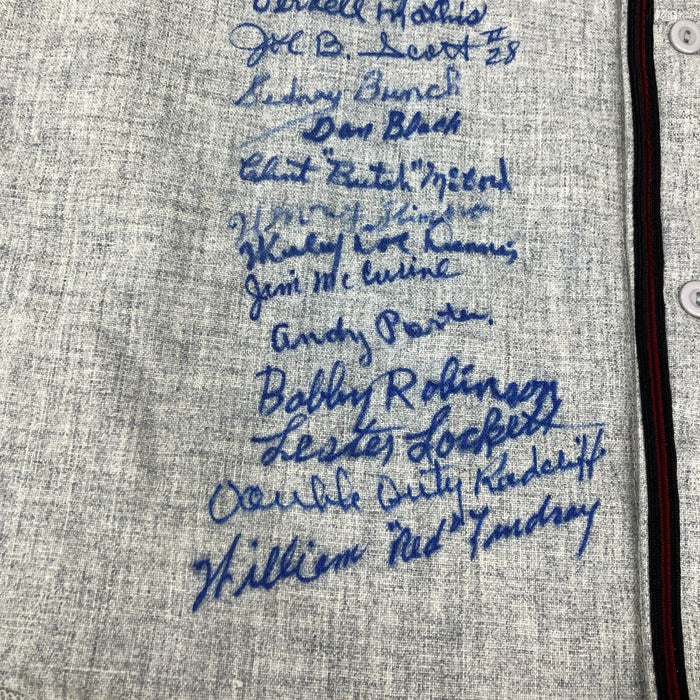 Verdell Mathis
Joe B. Scott #28
Sidney Bunch
Dan Black
Clint "Butch" McCord
Wesley Lou Dennis
Jim McCurine
Andy Porter.
Bobby Robinson
Lester Lockett
Double Duty Radcliff
William "Red" Lindsay